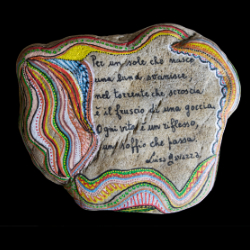 Per un sole che nasce
una luna svanisce,
nel torrente che scroscia
è il fruscio di una goccia.
Ogni vita è un riflesso,
un soffio che passa.